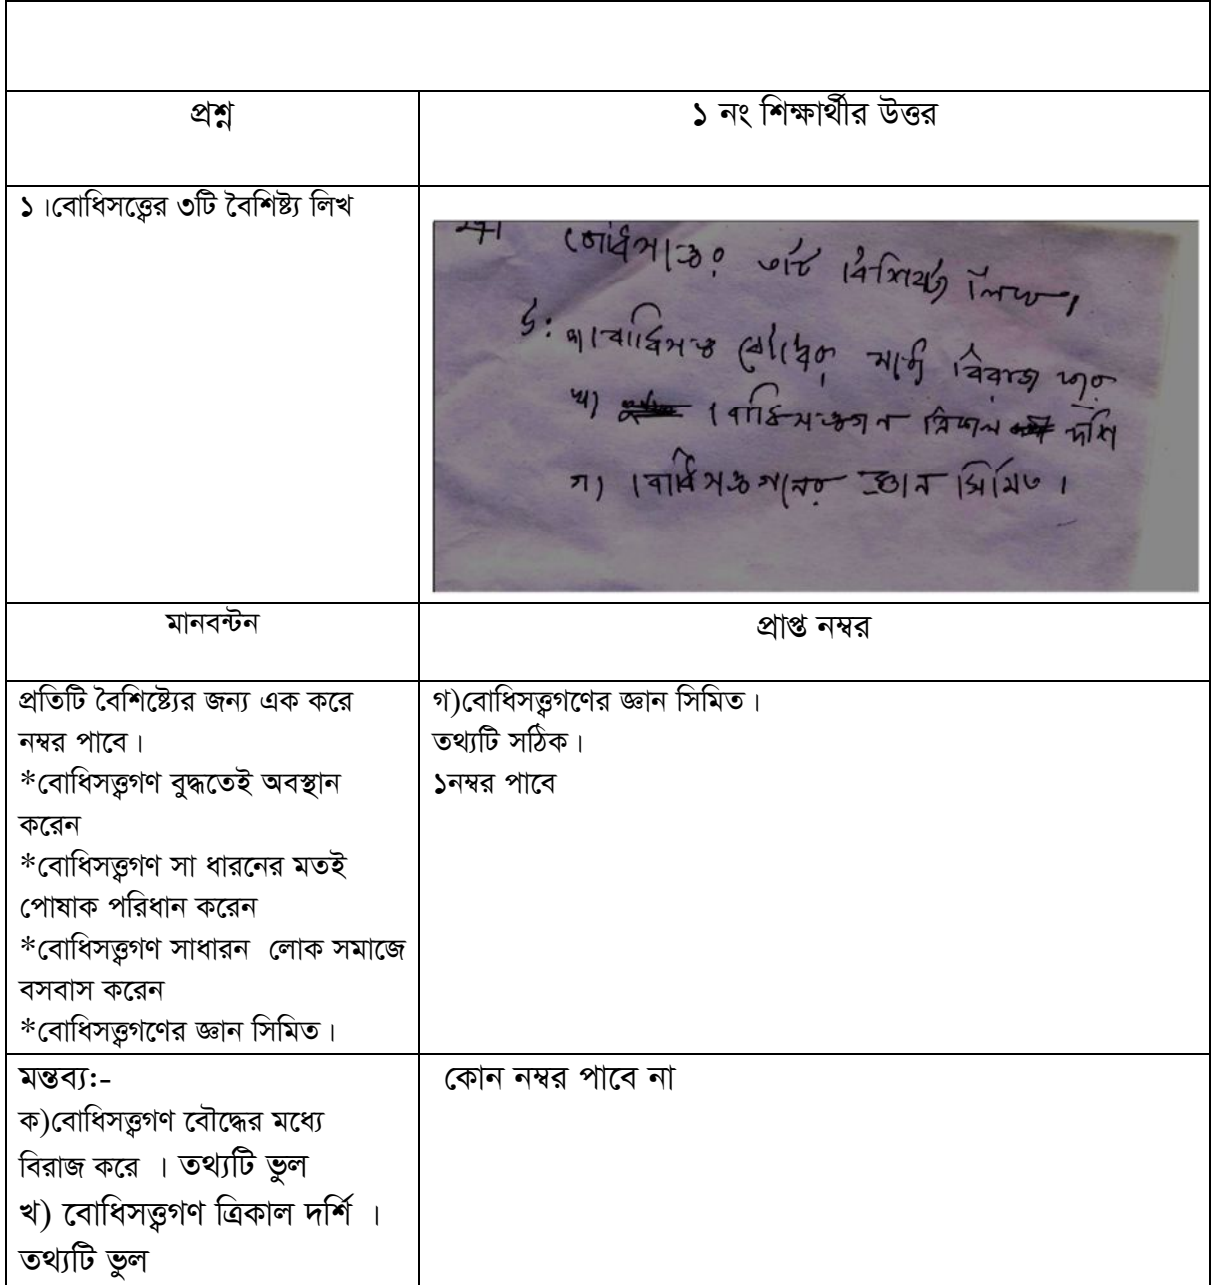 প্রশ্ন
১ নং শিক্ষার্থীর উত্তর
১।বোধিসত্ত্বের ৩টি বৈশিষ্ট্য লিখ
বোধিসত্তের ৩টি বৈশিষ্ট্য লিখ।
উ: ক) বোধিসত্ত বৌদ্ধের মধ্যে বিরাজ করে
খ) বোধিসত্তগন ত্রিকাল দর্শি
গ) বোধিসত্তগনের জ্ঞান সিমিত।
মানবন্টন
প্রাপ্ত নম্বর
প্রতিটি বৈশিষ্ট্যের জন্য এক করে
নম্বর পাবে।
*বোধিসত্ত্বগণ বুদ্ধতেই অবস্থান
করেন
*বোধিসত্ত্বগণ সা ধারনের মতই
পোষাক পরিধান করেন
*বোধিসত্ত্বগণ সাধারন লোক সমাজে
বসবাস করেন
*বোধিসত্ত্বগণের জ্ঞান সিমিত।
গ)বোধিসত্ত্বগণের জ্ঞান সিমিত।
তথ্যটি সঠিক।
১নম্বর পাবে
মন্তব্য:-
ক)বোধিসত্ত্বগণ বৌদ্ধের মধ্যে
বিরাজ করে । তথ্যটি ভুল
খ) বোধিসত্ত্বগণ ত্রিকাল দর্শি ।
তথ্যটি ভুল
কোন নম্বর পাবে না